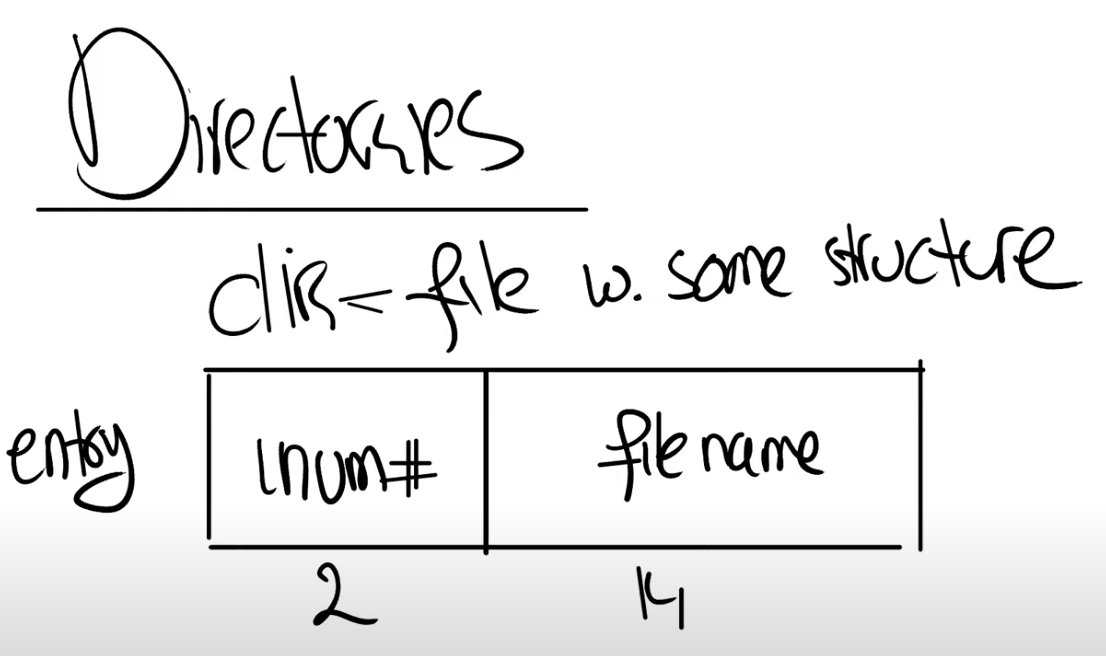 Directories
dir = file w. some structure
entry inum# filename
2 14